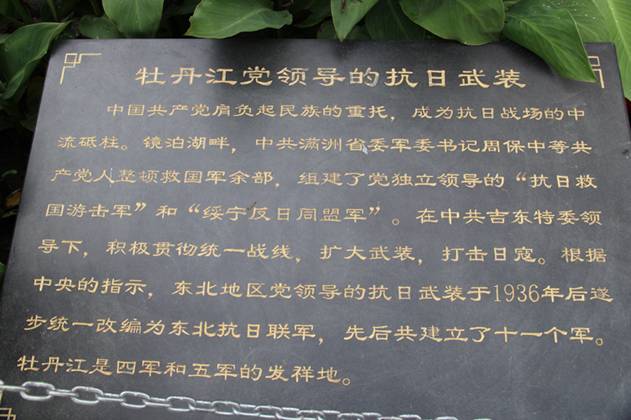 牡丹江党领导的抗日武装
中国共产党肩负起民族的重托，成为抗日战场的中
流砥柱。镜泊湖畔，中共满洲省委军委书记周保中等共
产党人整顿救国军余部，组建了党独立领导的“抗日救
国游击军”和“绥宁反日同盟军”。在中共吉东特委领
导下，积极贯彻统一战线，扩大武装，打击日寇。根据
中央的指示，东北地区党领导的抗日武装于1936年后逐
步统一改编为东北抗日联军，先后共建立了十一个军。
牡丹江是四军和五军的发祥地。